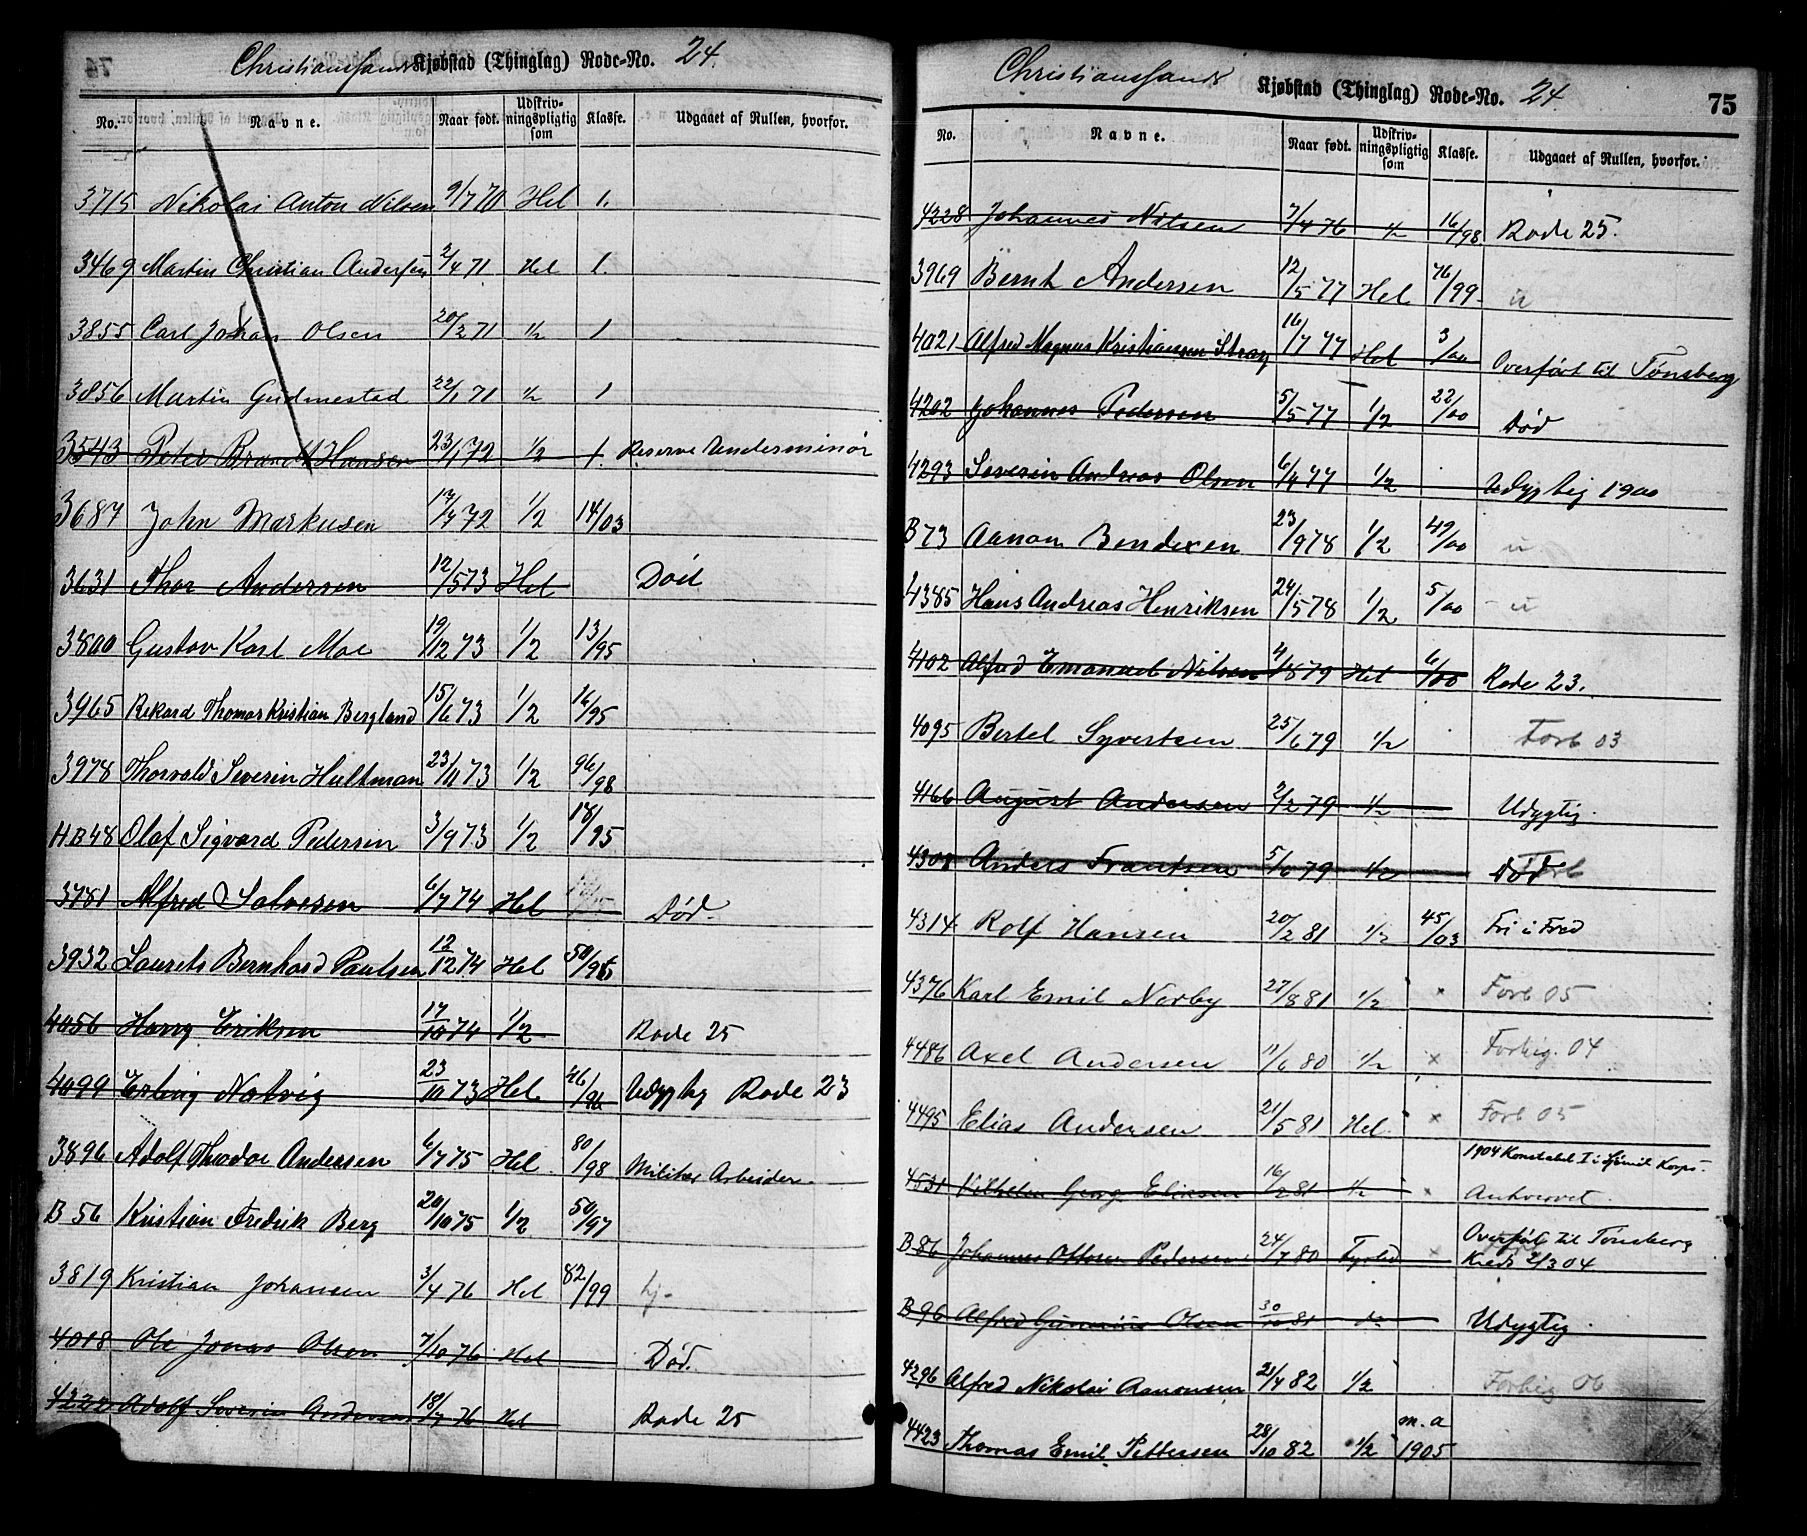 Christianssands Kjøbstad (Thinglag) Rode-No. 24.
No. Navne. Naar født. Udskriv-ningspligtig som Klasse. Udgaaet af Rullen, hvorfor.
3715 Nikolai Anton Nilsen 9/7 70 Hel 1.
3469 Martin Christian Andersen 2/4 71 Hel 1.
3855 Carl Johan Olsen 20/2 71 1/2 1
3856 Martin Gudmestad 22/1 71 1/2 1
3543 Peter Brandt Hansen 23/1 72 1/2 1. Reserve Underminør
3687 John Markusen 17/7 72 1/2 14/03
3631 Thor Andersen 12/5 73 Hel Död
3800 Gustav Karl Moe 19/12 73 1/2 13/95
3965 Rikard Thomas Kristian Bergland 15/6 73 1/2 16/95
3978 Thorvald Severin Hultman 23/11 73 1/2 96/98
HB48 Olaf Sigvard Pedersen 3/9 73 1/2 18/95
3781 Alfred Salvesen 6/7 74 Hel Død.
3932 Laurits Bernhard Paulsen 12/12 74 Hel 50/96
4056 Harry Eriksen 17/10 74 1/2 Rode 25
4099 Erling Natvig 23/10 73 Hel 46/96 Udygtig Rode 23
3896 Adolf Theodor Andersen 6/7 75 Hel 80/98 Militær Arbeider.
B 56 Kristian Fredrik Berg 20/10 75 1/2 50/97
3819 Kristian Johansen 3/4 76 Hel 82/99
4018 Ole Jonas Olsen 7/10 76 Hel Død.
4222 Adolf Severin Andersen 18/7 76 Hel Rode 25
Christianssands Kjøbstad (Thinglag) Rode-No. 24
75
No. Navne. Naar født. Udskriv-ningspligtig som Klasse. Udgaaet af Rullen, hvorfor.
4228 Johannes Nilsen 7/4 76 1/2 16/98 Rode 25.
3969 Bernt Andersen 12/5 77 Hel 76/99 u
4021 Alfred Magnus Kristiansen Stray 16/7 77 Hel 3/00 Overført til Tønsberg
4202 Johannes Pedersen 5/5 77 1/2 22/00 Død
4293 Severin Andreas Olsen 6/4 77 1/2 Udygtig 1900
B73 Aanon Bendixen 23/9 78 1/2 49/00 u
4385 Hans Andreas Henriksen 24/5 78 1/2 5/00 u
4102 Alfred Emanuel Nilsen 4/8 79 Hel 6/00 Rode 23.
4095 Bertel Syvertsen 25/6 79 1/2 Forb 03
4166 August Andersen 2/2 79 1/2 Udygtig.
4308 Anders Frantsen 5/6 79 1/2 Død
4314 Rolf Hansen 20/2 81 1/2 45/03 Fri i Fred
4376 Karl Emil Nerby 27/8 81 1/2 x Forb 05
4486 Axel Andersen 11/6 80 1/2 x Forbig. 04
4495 Elias Andersen 21/5 81 Hel. x Forb 05
4531 Vilhelm Georg Eliesen 16/2 81 1/2 x 1904 Konstabel I i Sømil Korps. Anhvervet.
B86 Johannes Ottosen Pedersen 24/7 80 x Overført til Tønsberg Kreds 2/3 04
B96 Alfred Gunerius Olsen 30/10 81 Udygtig.
4296 Alfred Nikolai Aanonsen 21/4 82 1/2 Forbig 06
4423 Thomas Emil Pettersen 28/10 82 1/2 m. a 1905